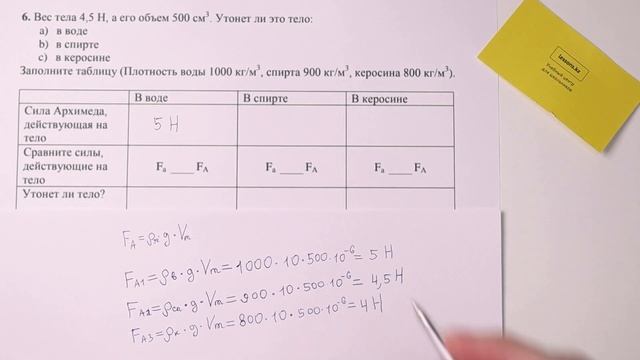 6. Вес тела 4,5 Н, а его объем 500 см³. Утонет ли это тело:
a) в воде
b) в спирте
c) в керосине
Заполните таблицу (Плотность воды 1000 кг/м³, спирта 900 кг/м³, керосина 800 кг/м³).
В воде В спирте В керосине
Сила Архимеда, действующая на тело 5 Н
Сравните силы, действующие на тело Fₐ ____ F_A Fₐ ____ F_A Fₐ ____ F_A
Утонет ли тело?
F_A = ρж · g · Vт
F_A1 = ρв · g · Vт = 1000 · 10 · 500 · 10⁻⁶ = 5 Н
F_A2 = ρсп · g · Vт = 900 · 10 · 500 · 10⁻⁶ = 4,5 Н
F_A3 = ρк · g · Vт = 800 · 10 · 500 · 10⁻⁶ = 4 Н
Учебный центр
для школьников